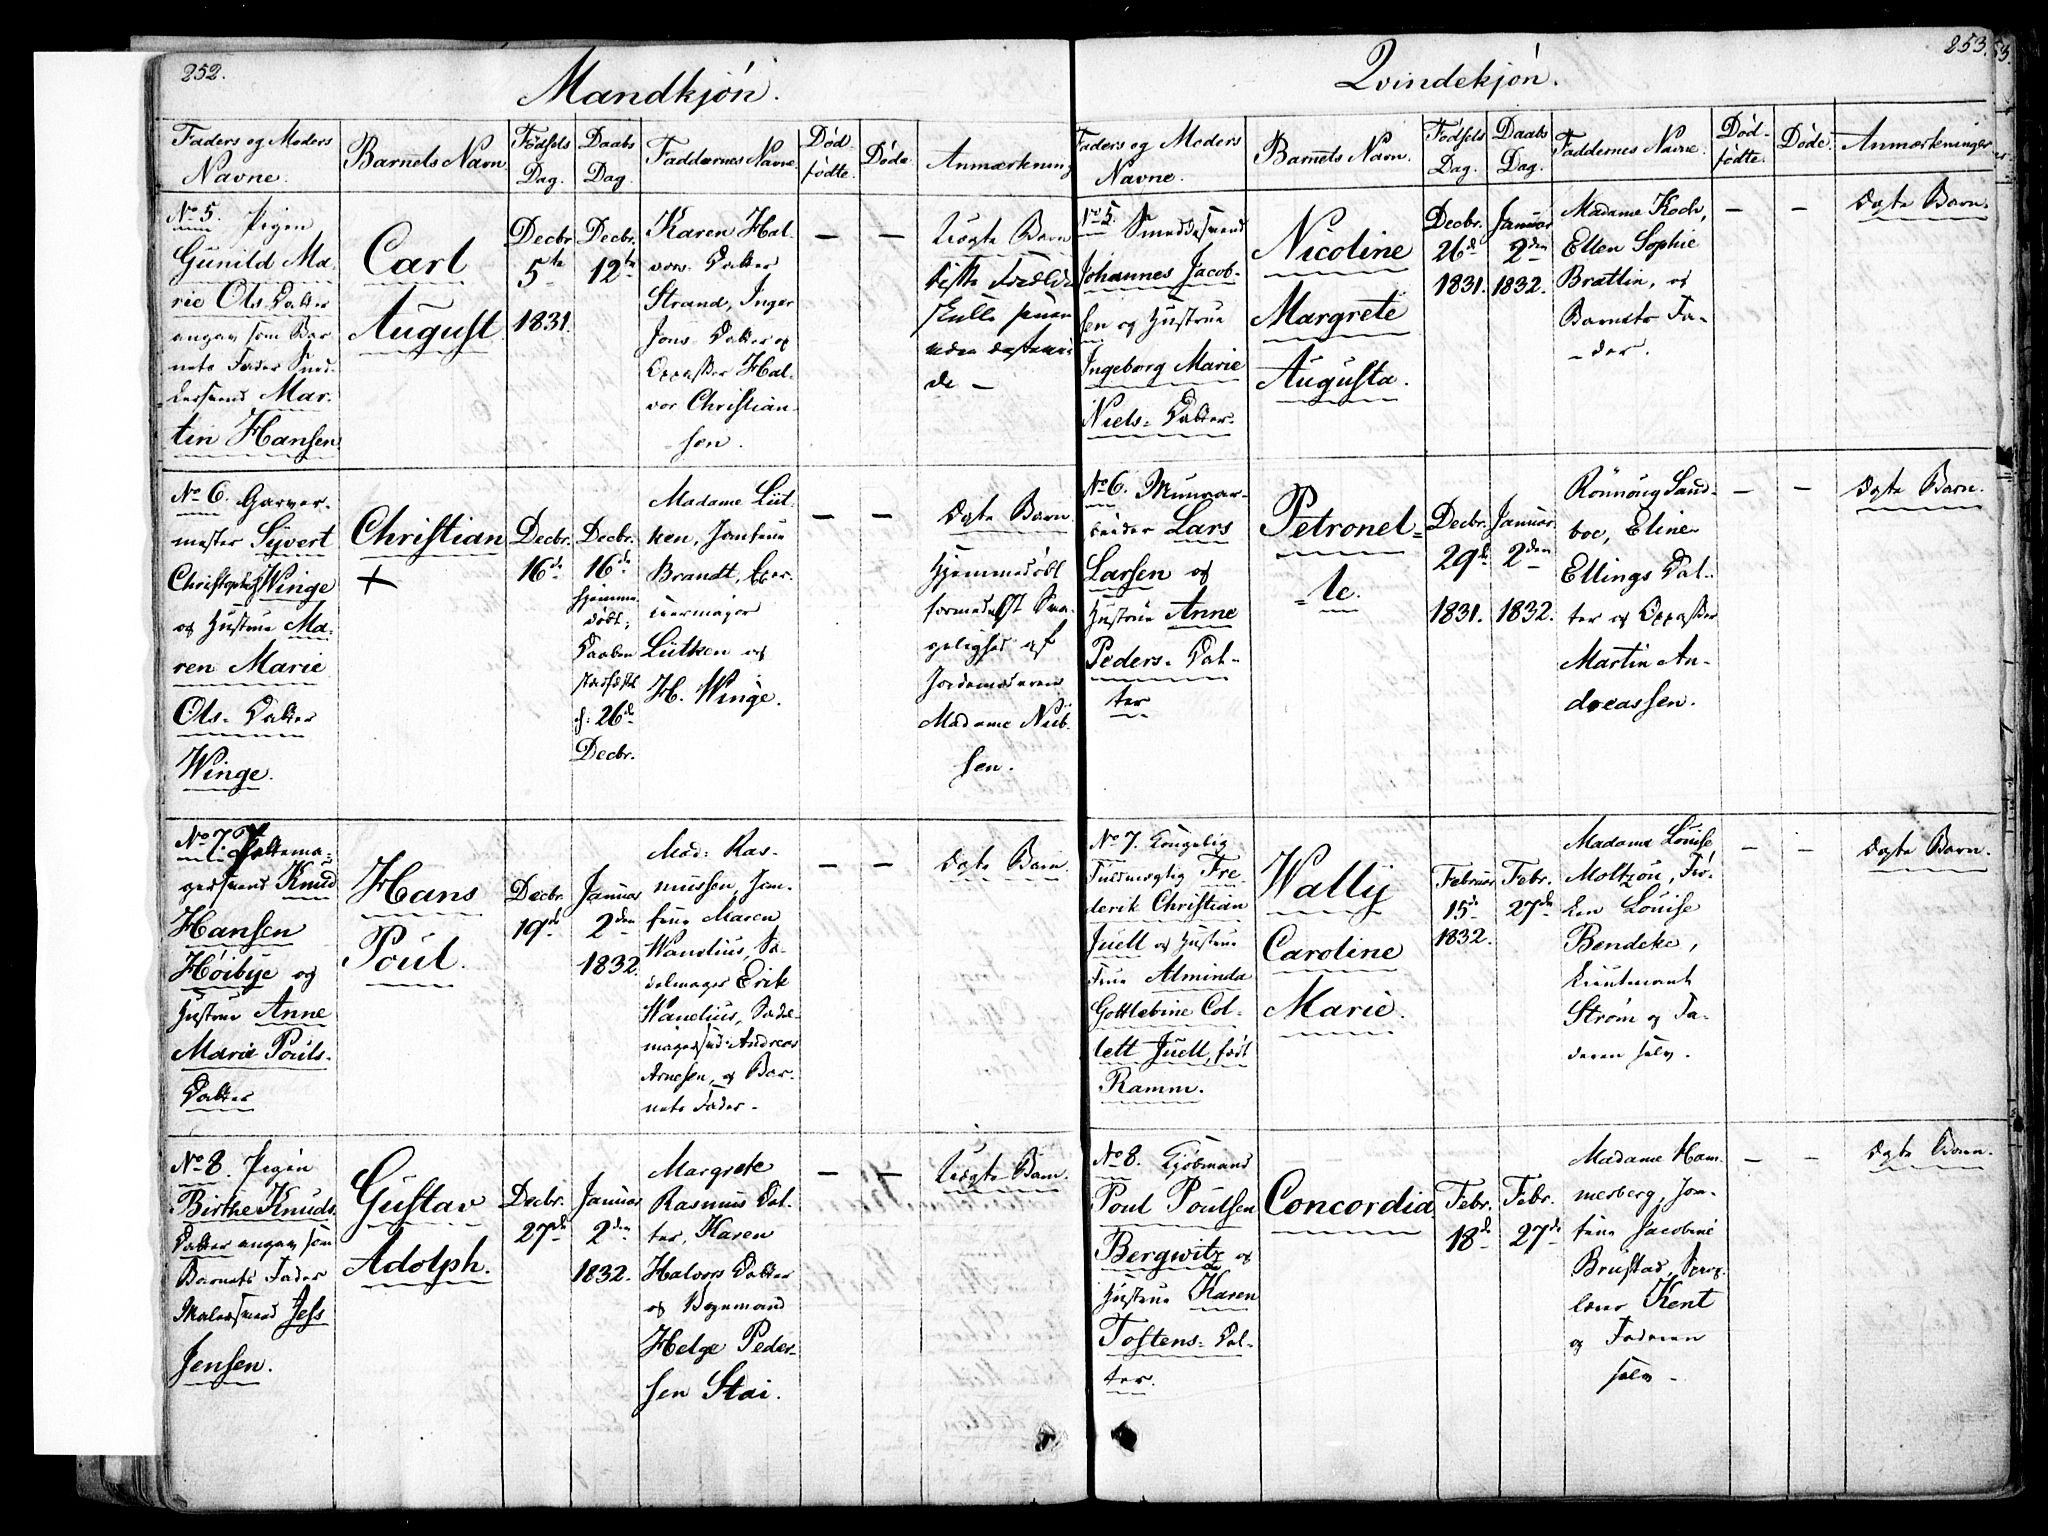 252.
Mandkjön.
Faders og Moders
Navne.
Barnets Navn
Fødsels
Dag.
Daabs
Dag.
Faddernes Navne
Død
fødte.
Døde
Anmærkning
No 5. Pigen
Gunild Ma-
rie Ols Datter
angav som Bar
nets Fader Smed
desvend Mar-
tin Hansen
Carl
August
Decbr
5te
1831.
Decbr.
12te
Karen Hal-
vors Datter
Strand, Inger
Jons Datter og
Oppasser Hal-
vor Christian-
sen.
— —
Uægte Barn
de —
No 6. Garver-
mester Sÿvert
Christophers Winge
og Hustrue Ma-
ren Marie
Ols- Datter
Winge.
Christian
+
Decbr.
16de
Decbr.
16de
Hjemme
døbt;
Daaben
stadfæstet
d: 26de
Decbr.
Madame Lüt-
ken, Jomfrue
Brandt,
Lütken og
H. Winge.
— —
Ægte Barn.
Hjemmedøbt
formedelst Sva-
gelighed af
Jordemoderen
Madame Nieb-
sen.
No 7. Pottema-
gersvend Knud
Hansen
Höibÿe og
Hustrue Anne
Marie Pouls-
Datter
Hans
Poul.
Decbr.
19de
Januar
2den
1832
Mad: Ras-
mussen, Jom-
frue Maren
Wandius, Sa-
delmager Erik
Wandius, Sadel-
magersvd: Andreas
Arnesen, og Bar-
nets Fader.
— —
Ægte Barn.
No 8. Pigen
Birthe Knuds
Datter angav som
Barnets Fader
Malersvend Jess
Jensen.
Gustav
Adolph.
Decbr.
27de
Januar
2den
1832.
Margrete
Rasmus Dat-
ter, Karen
Halvors Datter
og Bogmand
Helge Peder-
sen Stai.
— —
Uægte Barn.
253.
Qvindekjön.
Faders og Moders
Navne.
Barnets Navn.
Fødsels
Dag.
Daabs
Dag.
Faddernes Navne
Død-
fødte.
Døde.
Anmærkninger
No 5. Smeddesvend
Johannes Jacob-
sen og Hustrue
Ingeborg Marie
Niels- Datter
Nicoline
Margrete
Augusta.
Decbr.
26de
1831.
Januar
2den
1832.
Madame Koch,
Ellen Sophie
Brattin, og
Barnets Fa-
- der.
— —
Ægte Barn.
No 6. Muurar-
beider Lars
Larsen og
Hustrue Anne
Peders- Dat-
ter
Petronel-
-le.
Decbr.
29de
1831.
Januar
2den
1832.
Rönnoug Sand-
boe, Eline
Ellings Dat-
ter og Oppasser
Martin An-
dreassen.
— —
Ægte Barn.
No 7. Kongelig
Fuldmægtig Fre-
derik Christian
Juell og Hustrue
Frue Alminda
Gottlebine Col-
lett Juell, født
Ramm.
Wallÿ
Caroline
Marie.
Februar
15de
1832.
Febr.
27de
Madame Louise
Moltzou, Frø-
ken Louise
Bendeke,
Lieutenant
Strøm og Fa-
deren selv.
— —
Ægte Barn.
No 8. Kjöbmand
Poul Poulsen
Bergwitz og
Hustrue Karen
Tostens- Dat-
ter.
Concordia
Febr.
18de
Febr.
27de
Madame Ham-
merberg, Jom-
frue Jacobine
Brustad,
Kent
og Faderen
selv —
— —
Ægte Barn.